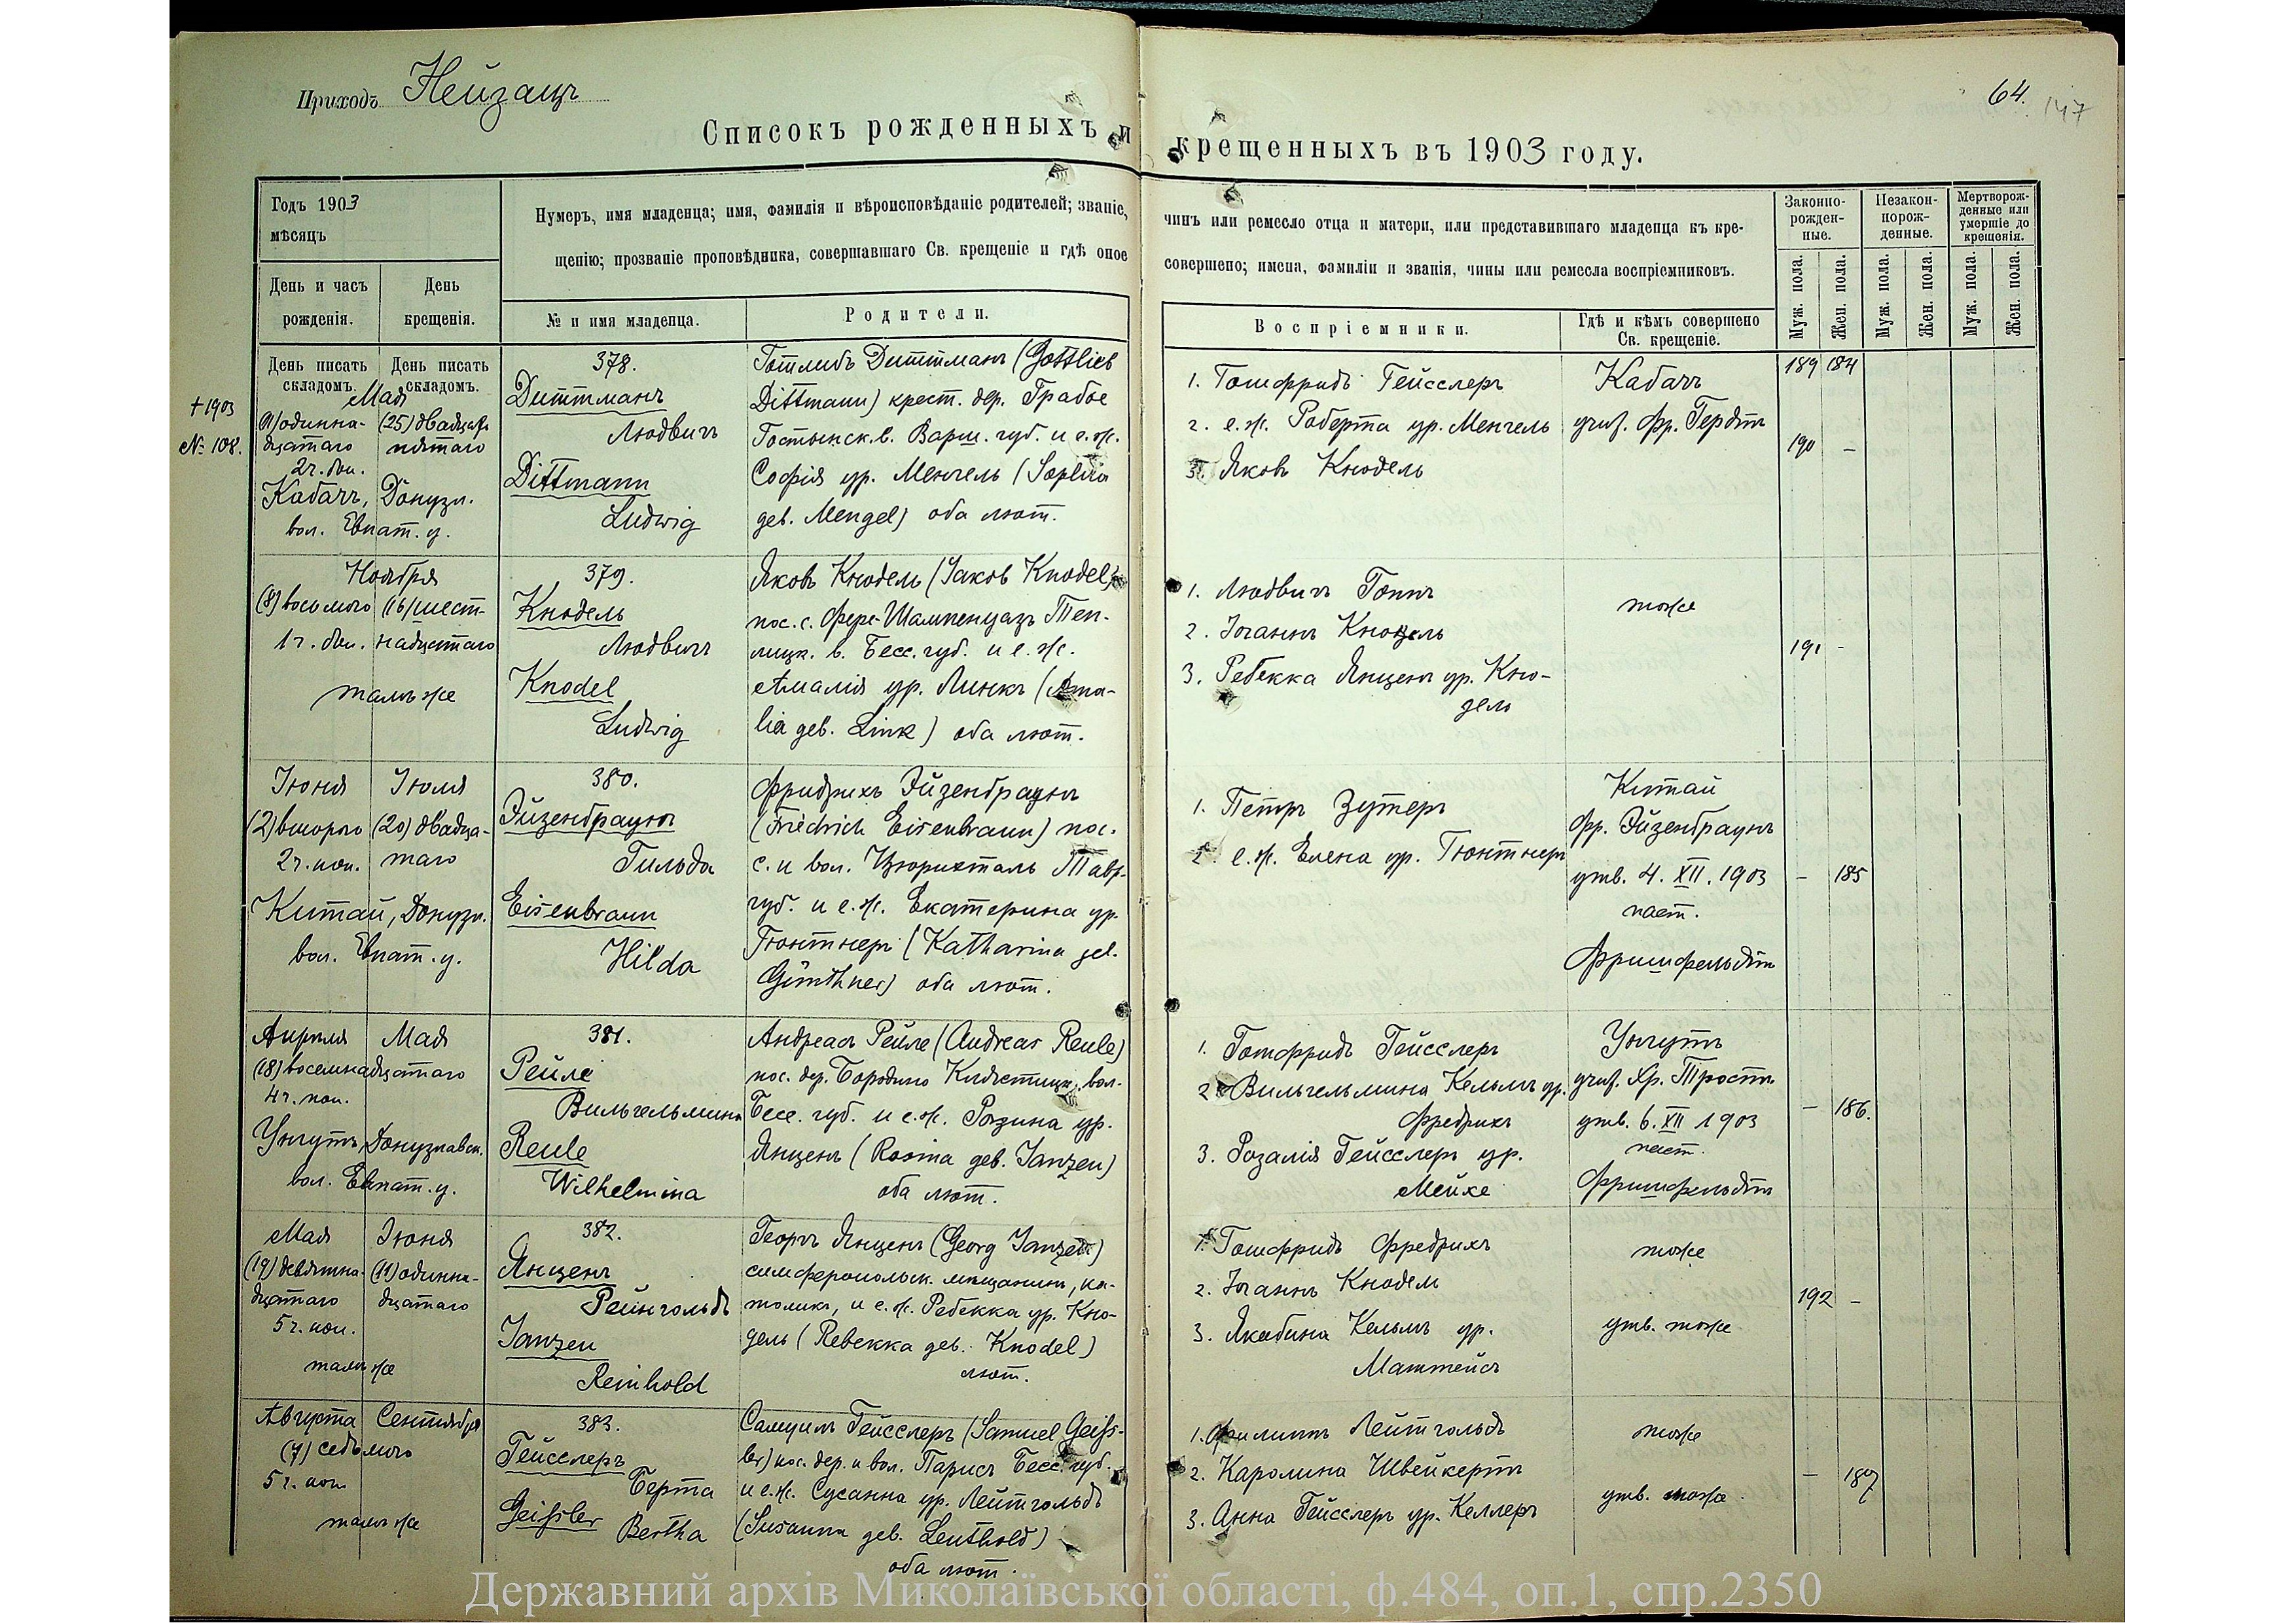 Приходъ Нейзацъ
64.
147
Списокъ рожденныхъ и крещенныхъ въ 1903 году.
Годъ 1903
мѣсяцъ
День и часъ рожденія.
День крещенія.
Нумеръ, имя младенца; имя, фамилія и вѣроисповѣданіе родителей; званіе,
щенію; прозваніе проповѣдника, совершавшаго Св. крещеніе и гдѣ оное
№ и имя младенца.
Родители.
чинъ или ремесло отца и матери, или представившаго младенца къ кре-
совершено; имена, фамиліи и званія, чины или ремесла воспріемниковъ.
Воспріемники.
Гдѣ и кѣмъ совершено
Св. крещеніе.
Законно-
рожден-
ные.
Незакон-
норож-
денные.
Мертворож-
денные или
умершіе до
крещенія.
Муж. пола.
Жен. пола.
Муж. пола.
Жен. пола.
Муж. пола.
Жен. пола.
День писать
складомъ.
День писать
складомъ.
† 1903
№ 108.
Мая
(11) одинна-
дцатаго
2 ч. дн.
(25) двадцать
пятаго
Кабачъ, Донузл.
вол. Евпат. у.
378.
Диттманъ
Людвигъ
Dittmann
Ludwig
Готлибъ Диттманъ (Gottlieb
Dittmann) крест. дер. Грабое
Гостынск. в. Варш. губ. и е. ж.
Софія ур. Менгель (Sophia
geb. Mengel) оба лют.
1. Готфридъ Гейсслеръ
2. е. ж. Роберта ур. Менгель
3. Яковъ Кнодель
Кабачъ
учит. Фр. Гердтъ
189 184
190 -
Ноября
(8) восьмого
1 ч. дн.
(16) шест-
надцатаго
тамъ же
379.
Кнодель
Людвигъ
Knodel
Ludwig
Яковъ Кнодель (Jakob Knodel)
пос. с. Фере-Шампенуазъ Теп-
лицк. в. Бесс. губ. и е. ж.
Амалія ур. Линкъ (Ama-
lia geb. Link) оба лют.
1. Людвигъ Гоппъ
2. Іоганнъ Кнодель
3. Ребекка Янценъ ур. Кно-
дель
тоже
191 -
Іюня
(2) второго
2 ч. поп.
Іюля
(20) двадца-
таго
Китай, Донузл.
вол. Евпат. у.
380.
Эйзенбраунъ
Гильда
Eisenbraun
Hilda
Фридрихъ Эйзенбраунъ
(Friedrich Eisenbraun) пос.
с. и вол. Цюрихталь Тавр.
губ. и е. ж. Екатерина ур.
Гюнтнеръ (Katharina geb.
Günthner) оба лют.
1. Петръ Зутеръ
2. е. ж. Елена ур. Гюнтнеръ
Китай
Фр. Эйзенбраунъ
утв. 4. XII. 1903
паст.
Фришфельдтъ
- 185
Апрѣля
(18) восемнадцатаго
4 ч. поп.
Мая
Унгутъ, Донузлавск.
вол. Евпат. у.
381.
Рейле
Вильгельмина
Reule
Wilhelmina
Андреасъ Рейле (Andreas Reule)
пос. дер. Бородино Клястицк. вол.
Бесс. губ. и е. ж. Розина ур.
Янценъ (Rosina geb. Janzen)
оба лют.
1. Готфридъ Гейсслеръ
2. Вильгельмина Кельмъ ур.
Фредрихъ
3. Розалія Гейсслеръ ур.
Мейхе
Унгутъ
учит. Хр. Тростъ
утв. 6. XII 1903
паст.
Фришфельдтъ
- 186.
Мая
(19) девятна-
дцатаго
5 ч. поп.
Іюня
(11) одинна-
дцатаго
тамъ же
382.
Янценъ
Рейнгольдъ
Janzen
Reinhold
Георгъ Янценъ (Georg Janzen)
симферопольск. мѣщанинъ, ка-
толикъ, и е. ж. Ребекка ур. Кно-
дель (Rebekka geb. Knodel)
лют.
1. Готфридъ Фредрихъ
2. Іоганнъ Кнодель
3. Якобина Кельмъ ур.
Маттейсъ
тоже
утв. тоже
192 -
Августа
Сентября
(7) седьмого
5 ч. поп.
тамъ же
383.
Гейсслеръ
Берта
Geißler
Bertha
Самуилъ Гейсслеръ (Samuel Geiß-
ler) пос. дер. и вол. Парисъ Бесс. губ.
и е. ж. Сусанна ур. Лейтгольдъ
(Susanna geb. Leuthold)
оба лют.
1. Филиппъ Лейтгольдъ
2. Каролина Швейкертъ
3. Анна Гейсслеръ ур. Келлеръ
тоже
утв. тоже.
- 187
Державний архів Миколаївської області, ф.484, оп.1, спр.2350